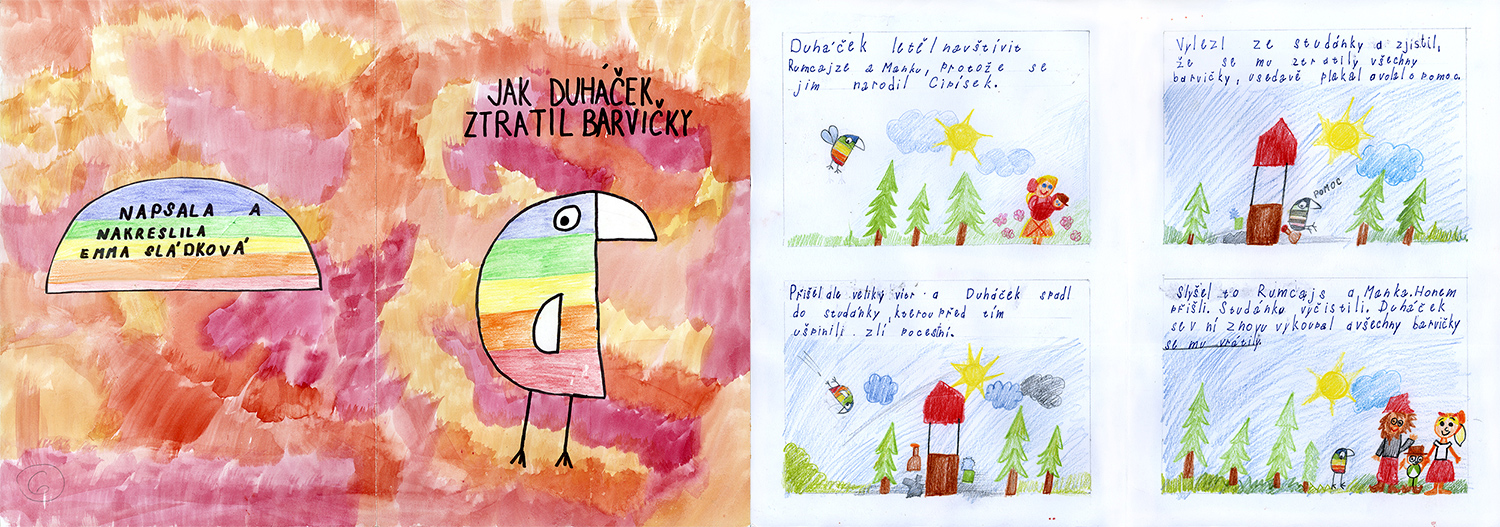 NAPSALA A
NAKRESLILA
EMMA SLÁDKOVÁ
JAK DUHÁČEK
ZTRATIL BARVIČKY
Duháček letěl navštívit
Rumcajze a Manku, Protože se
jim narodil Cipísek.
Přišel ale veliký vítr a Duháček spadl
do studánky, kterou před tím
ušpinili zlí pocestní.
Vylezl ze studánky a zjistil,
že se mu ztratily všechny
barvičky, usedavě plakal a volal o pomoc.
POMOC
Slyšel to Rumcajs a Manka. Honem
přišli. Studánku vyčistili. Duháček
se v ní znovu vykoupal a všechny barvičky
se mu vrátily.